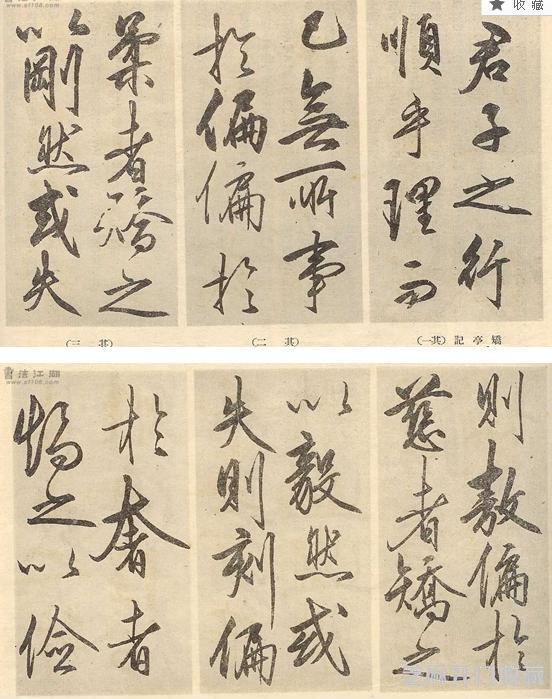 ★ 收藏
書法江湖
www.sf108.com
君子之行
順乎理而
已無所事
於偏偏於
柔者矯之
以剛然或失
矯亭記（其一）
（其二）
（其三）
書法江湖
www.sf108.com
則敖偏於
慈者矯之
以毅然或
失則刻偏
於奢者
矯之以儉